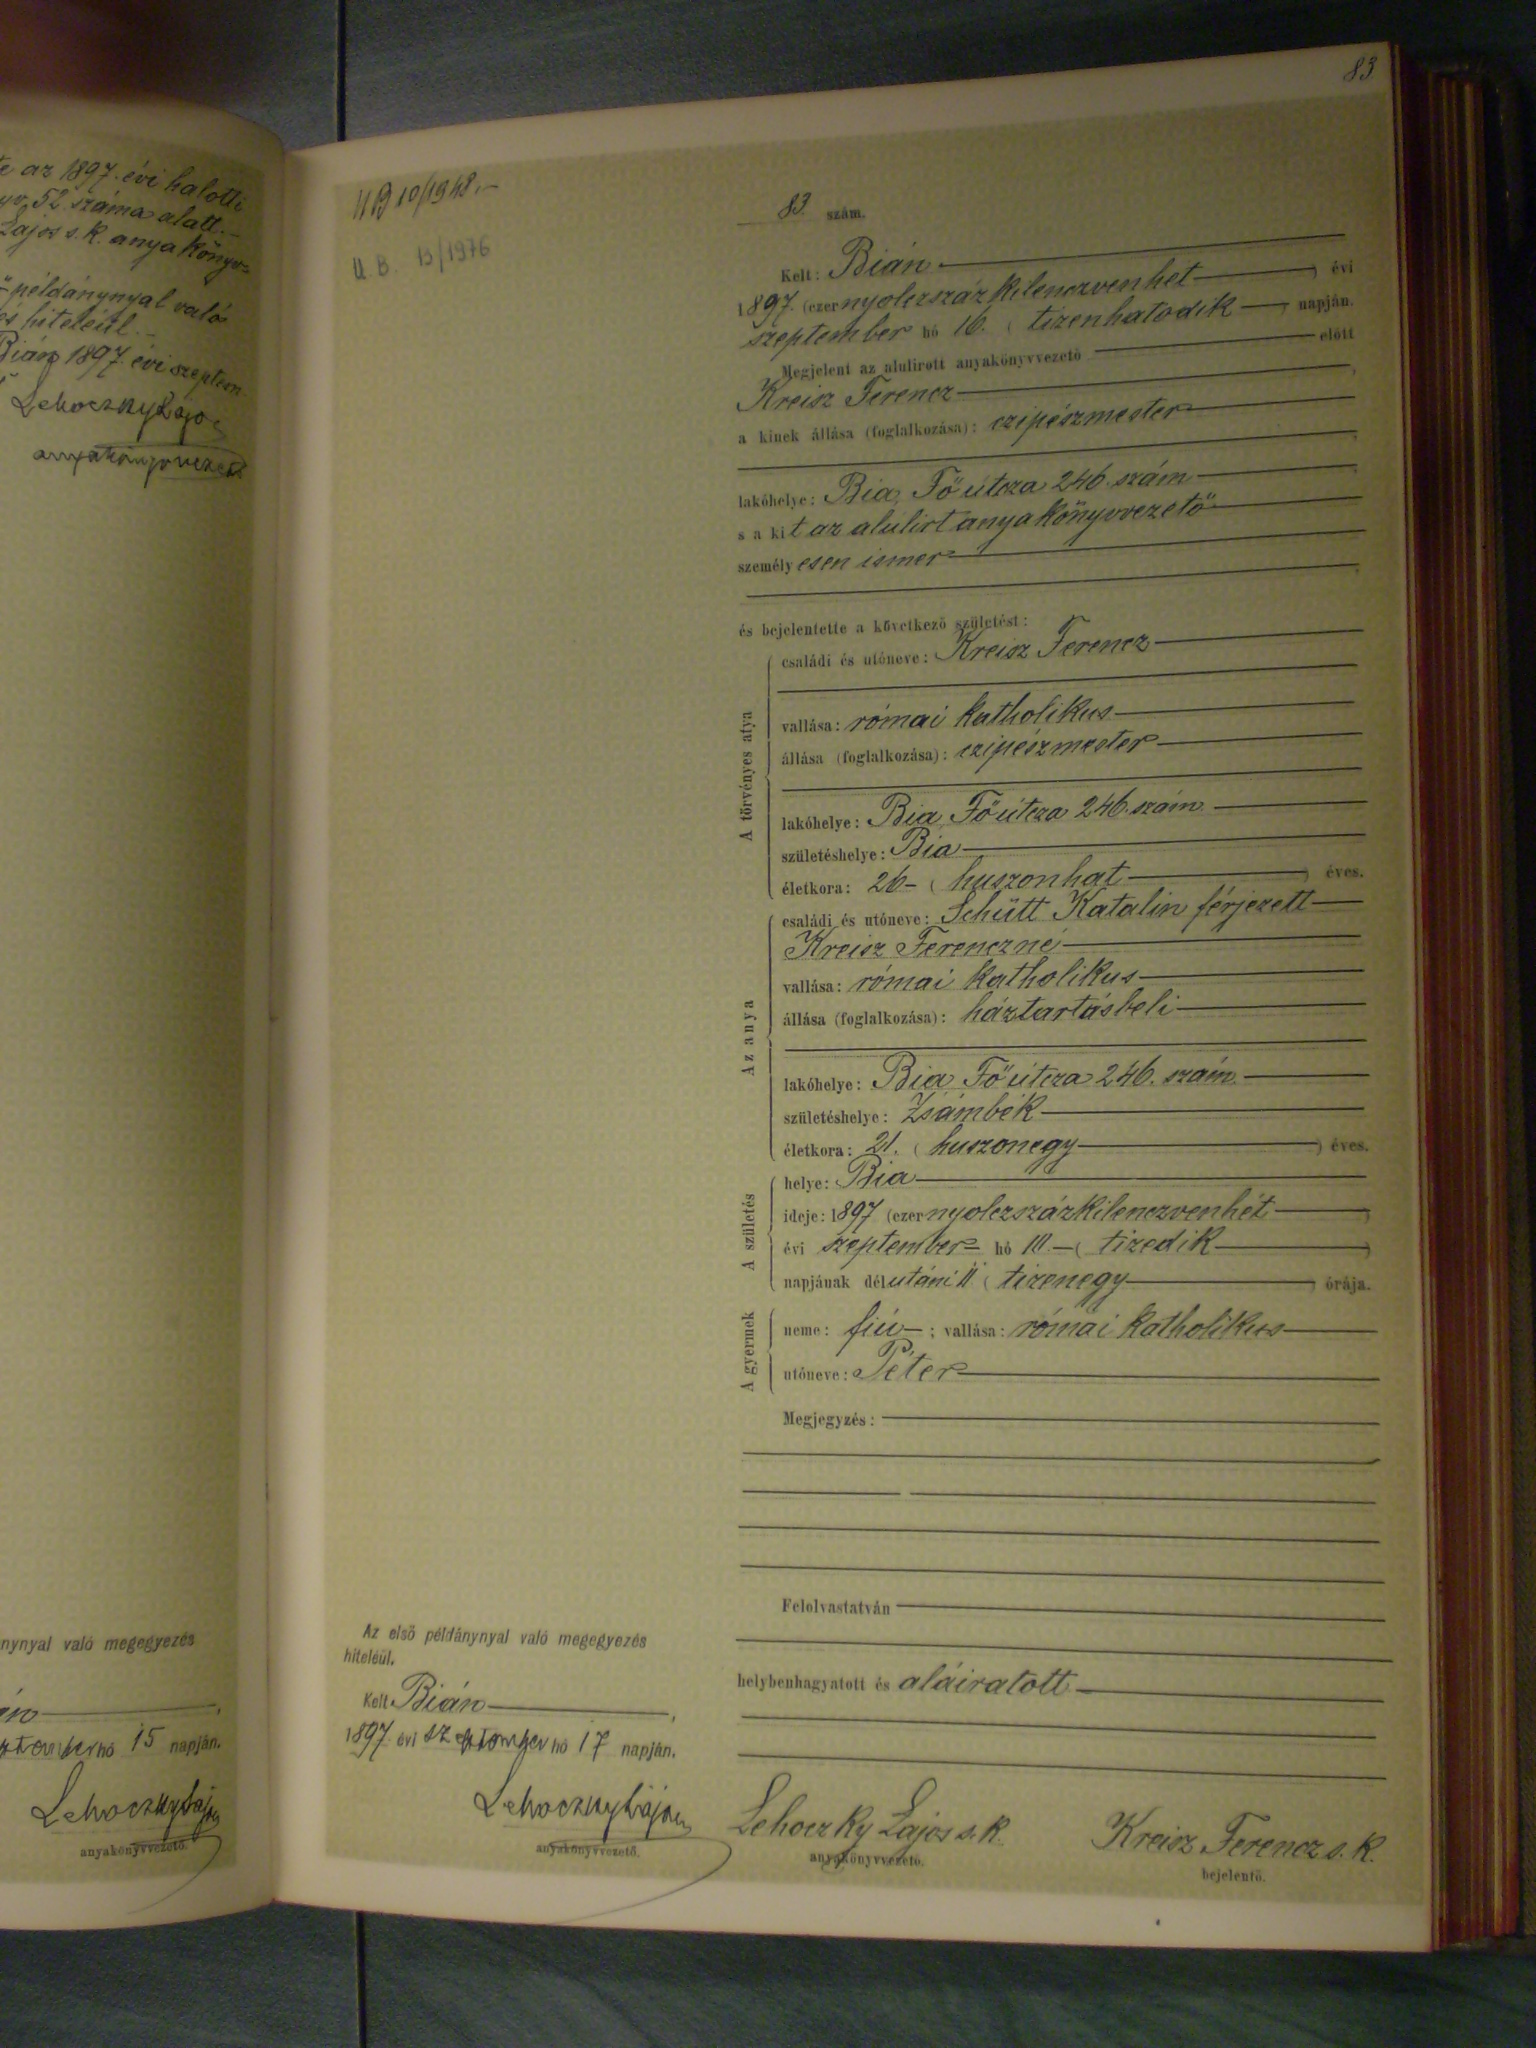 az 1897. évi halotti
52. száma alatt.
Lajos s. k. anyakönyv-
példánynyal való
hiteléül.
Bián 1897. évi szeptem
Lehoczky Lajos
anyakönyvvezető
nynyal való megegyezés
15 napján.
Lehoczky Lajos
anyakönyvvezető.
83
UB 10/1948.-
U.B. 13/1976
83. szám.
Kelt: Bián
1897. (ezernyolczszázkilenczvenhét) évi
szeptember hó 16. (tizenhatodik) napján.
Megjelent az alulirott anyakönyvvezető előtt
Kreisz Ferencz,
a kinek állása (foglalkozása): czipészmester
lakóhelye: Bia, Fő útcza 246. szám
s a kit az alulirt anyakönyvvezető
személyesen ismer
és bejelentette a következő születést:
A törvényes atya
családi és utóneve: Kreisz Ferencz
vallása: római katholikus
állása (foglalkozása): czipészmester
lakóhelye: Bia, Fő útcza 246. szám
születéshelye: Bia
életkora: 26 - (huszonhat) éves.
Az anya
családi és utóneve: Schütt Katalin férjezett
Kreisz Ferenczné
vallása: római katholikus
állása (foglalkozása): háztartásbeli
lakóhelye: Bia, Fő útcza 246. szám
születéshelye: Zsámbék
életkora: 21. (huszonegy) éves.
A születés
helye: Bia
ideje: 1897 (ezernyolczszázkilenczvenhét)
évi szeptember hó 10. - (tizedik)
napjának délutáni 11 (tizenegy) órája.
A gyermek
neme: fiú - ; vallása: római katholikus
utóneve: Péter
Megjegyzés:
Felolvastatván
helybenhagyatott és aláiratott
Az első példánynyal való megegyezés
hiteléül.
Kelt Bián,
1897. évi szeptember hó 17 napján.
Lehoczky Lajos
anyakönyvvezető.
Lehoczky Lajos s. k.
anyakönyvvezető.
Kreisz Ferencz s. k.
bejelentő.